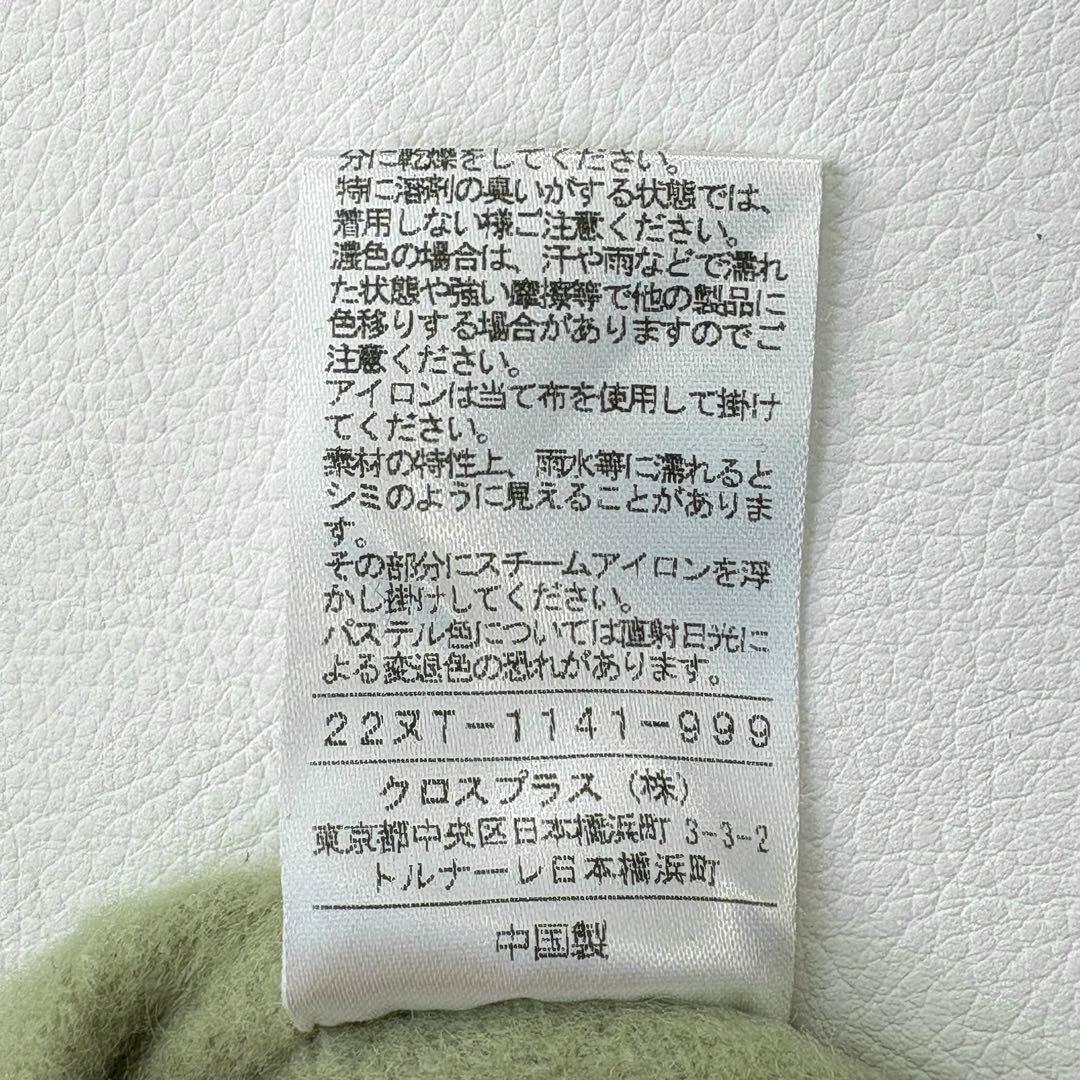 分に乾燥をしてください。
特に溶剤の臭いがする状態では、
着用しない様ご注意ください。
濃色の場合は、汗や雨などで濡れ
た状態や強い摩擦等で他の製品に
色移りする場合がありますのでご
注意ください。
アイロンは当て布を使用して掛け
てください。
素材の特性上、雨水等に濡れると
シミのように見えることがありま
す。
その部分にスチームアイロンを浮
かし掛けしてください。
パステル色については直射日光に
よる変退色の恐れがあります。
22ヌT-1141-999
クロスプラス(株)
東京都中央区日本橋浜町 3-3-2
トルナーレ日本橋浜町
中国製